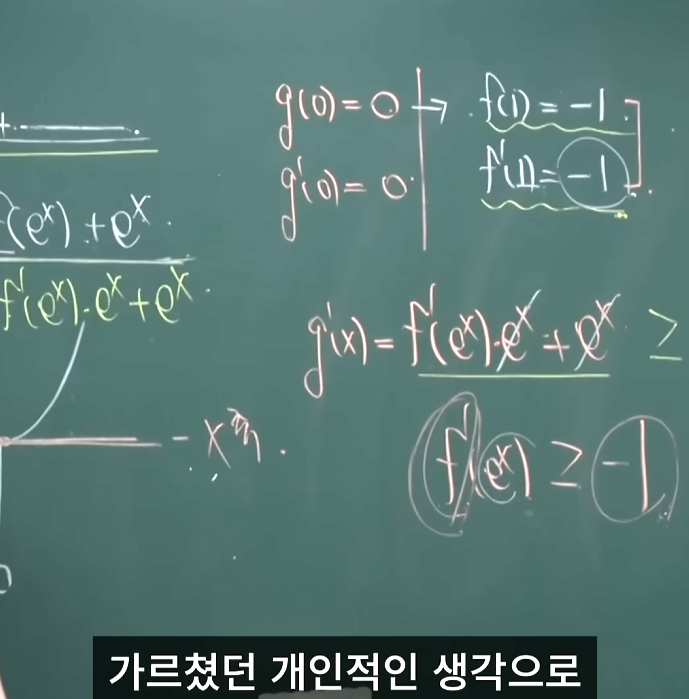 f(eˣ)+eˣ
f'(eˣ)·eˣ+eˣ
x축
g(0)=0 → f(1)=-1
g'(0)=0 f'(1)=-1
g'(x)=f'(eˣ)·eˣ+eˣ ≥
f'(eˣ) ≥ -1
가르쳤던 개인적인 생각으로